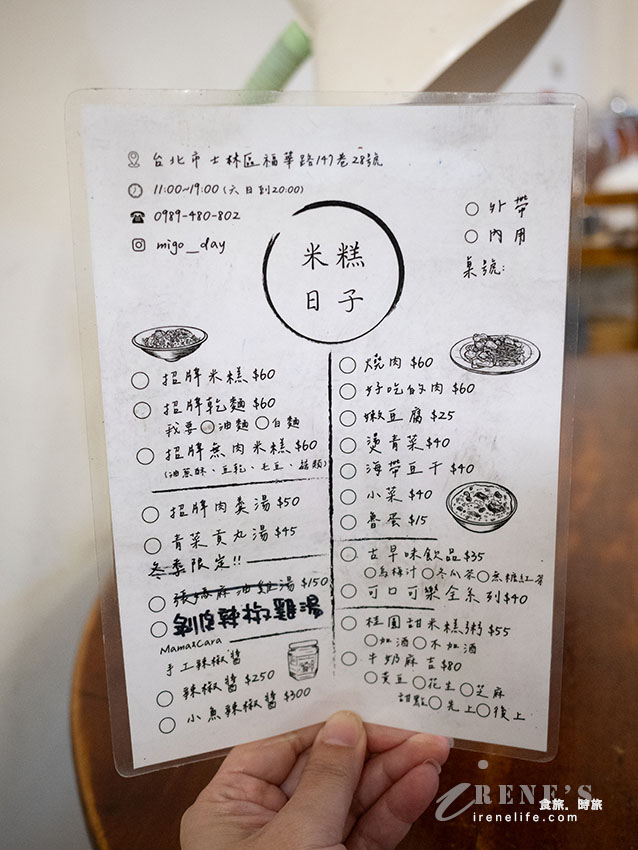 台北市士林區福華路147巷28號
11:00~19:00 (六日到20:00)
0989-480-802
migo_day
外帶
內用
桌號:
米糕
日子
招牌米糕 $60
招牌乾麵 $60
我要 油麵 白麵
招牌無肉米糕 $60
(油蔥酥、豆乾、毛豆、菇類)
招牌肉羹湯 $50
青菜貢丸湯 $45
冬季限定!!
麻油雞湯 $150
剝皮辣椒雞湯
Mama&Cara
手工辣椒醬
辣椒醬 $250
小魚辣椒醬 $300
燒肉 $60
好吃的肉 $60
嫩豆腐 $25
燙青菜 $40
海帶豆干 $40
小菜 $40
魯蛋 $15
古早味飲品 $35
烏梅汁 冬瓜茶 無糖紅茶
可口可樂全系列 $40
桂圓甜米糕粥 $55
加酒 不加酒
牛奶麻吉 $80
黃豆 花生 芝麻
甜點 先上 後上
iRENE'S
食旅．時旅
irenelife.com